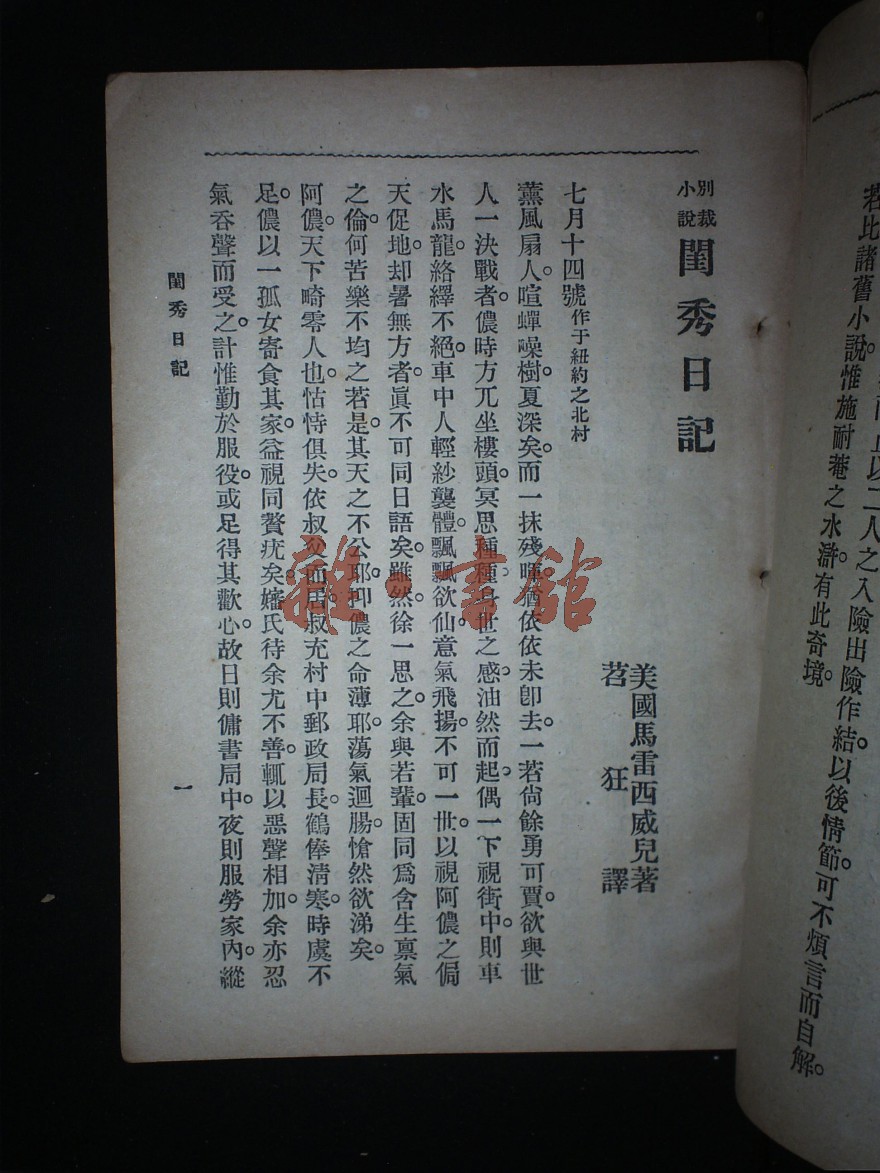 若此諸舊小說。惟施耐菴之水滸。有此奇境。
以二人之入險出險作結。以後情節。可不煩言而自解。
別裁小說 閨秀日記
美國馬雷西威兒著
苕狂譯
七月十四號作于紐約之北村
薰風扇人。喧蟬噪樹。夏深矣。而一抹殘暉。猶依依未卽去。一若尙餘勇可賈。欲與世
人一決戰者。儂時方兀坐樓頭。冥思種種身世之感。油然而起。偶一下視街中。則車
水馬龍。絡繹不絕。車中人輕紗襲體。飄飄欲仙。意氣飛揚。不可一世。以視阿儂之侷
天促地。却暑無方者。眞不可同日語矣。雖然。徐一思之。余與若輩。固同爲含生禀氣
之倫。何苦樂不均之若是。其天之不公耶。抑儂之命薄耶。蕩氣迴腸。愴然欲涕矣。
阿儂。天下畸零人也。怙恃俱失。依叔父而居。叔充村中郵政局長。鶴俸清寒。時虞不
足。儂以一孤女寄食其家。益視同贅疣矣。嬸氏待余尤不善。輒以惡聲相加。余亦忍
氣吞聲而受之。計惟勤於服役。或足得其歡心。故日則傭書局中。夜則服勞家內。縱
閨秀日記
一
雜·書館